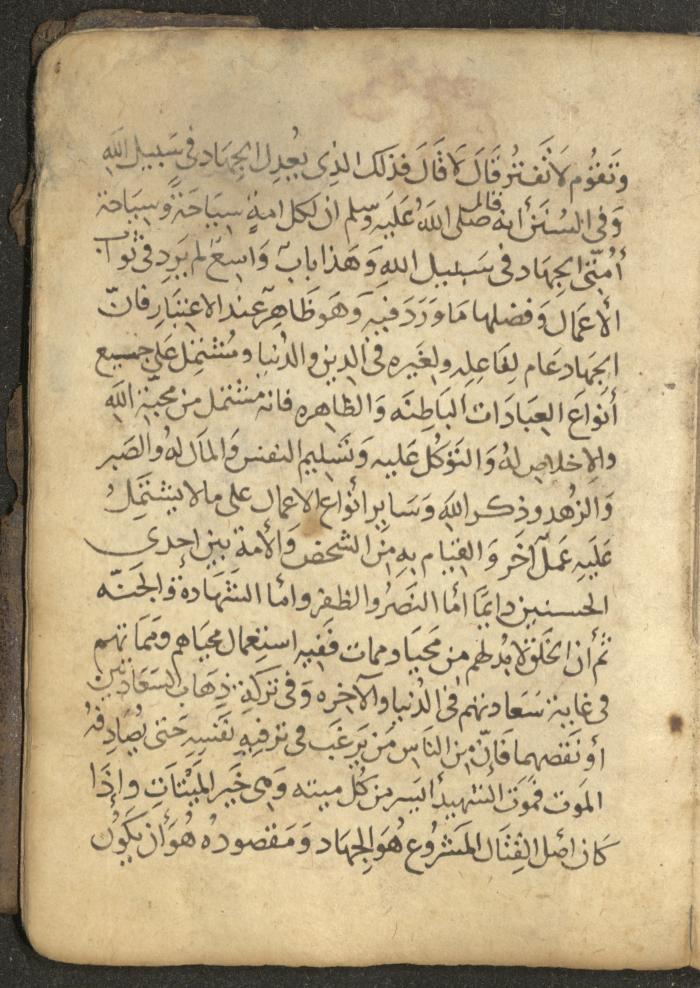 وَتَقوُم لَا تَفتُر قَالَ لَا قَالَ فَذلك الذِي يعُدِل الجِهَاد في سَبيل اللَّه
وَفي السُنَن أنه قال صَلى اللَّهُ عَلَيه وسَلم ان لكل امةٍ سِيَاحَةً وَسِيَاحَة
أُمتّي الجِهَاد في سَبيل اللهِ وَهَذا بابٌ وَاسِعٌ لم يَرد في ثوَاب
الأعمَال وَفضلها مَا وَرَدَ فيهِ وَهوَ ظَاهِرٌ عند الاعِتبَارِ فانّ
الجهَاد عَام لِفَاعِلهِ ولِغَيره في الدِين والدُنيا ومُشتمِل عَلى جميع
أنوَاعَ العِبَادَات البَاطِنَه وَالظاهِره فانه مشتمل من محبّة اللَّه
والاِخلاصِ لهُ وَالتَوَكُل عَليه وَتَسلِيم النفس وَالمَال لهُ والصَبر
وَالزُهد وذكر اللَّه وَسَايِر أنوَاع الاعمال على مالا يشتمِلُ
عَليَهِ عَمَلٌ آخَر وَالقِيَام بهِ مِن الشخص وَالأمة بين إحدى
الحسنيين دايمًا امّا النَصرُ والظفر وامّا الشَهَادةُ وَالجَنّه
ثم أن الخَلق لابُدلهم مِن مَحيَا وممات فَفيهِ استِعمال محيَاهم وَممَاتهم
في غاية سَعَادتهم في الدُنيا والآخِره وَفي تركهِ ذِهَاب السَعَادتين
أو نَقصهما فَانّ مِن النَاسِ مَن يَرغَب في ترفيهِ نَفسِهِ حَتى يُصَادِفهُ
الموَت فمَوَت الشهيدِ أيسر من كُل ميته وَهي خَير الميتَاتِ وإذَا
كانَ اصل القِتال المَشروُع هُوَ الجِهَاد وَمَقصودُه هُوَ أن يكَوُن